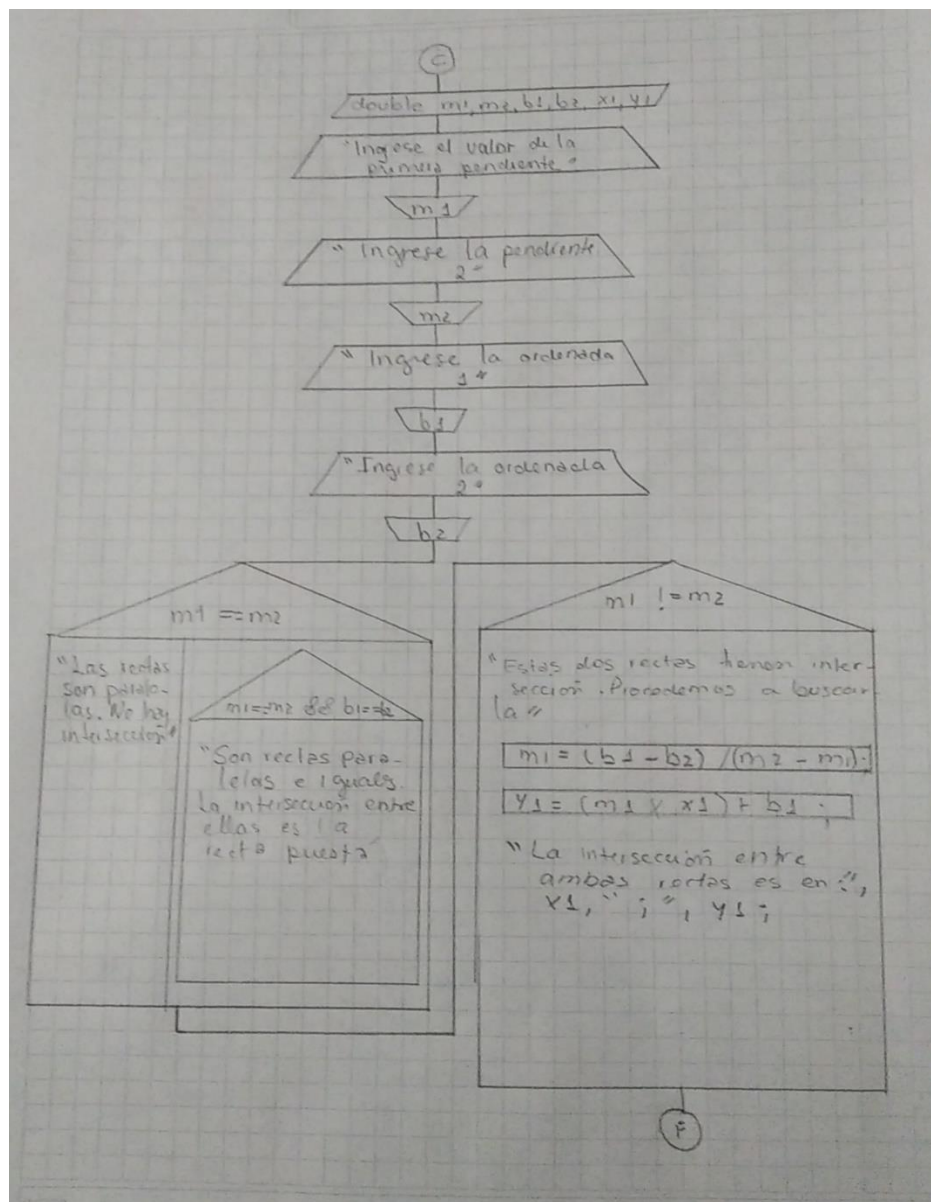 C
double m1, m2, b1, b2, x1, y1
"Ingese el valor de la
pendiente"
m1
"Ingrese la pendiente
2"
m2
"Ingrese la ordenada
1"
b1
"Ingrese la ordenada
2"
b2
m1 == m2
"Las rectas
son parale-
las. No hay
intersección"
m1==m2 && b1==
"Son rectas para-
lelas e iguales.
La intersección entre
ellas es la
recta puesta
m1 != m2
"Estas dos rectas tienen inter-
sección. Procedemos a buscar
la"
m1 = (b1-b2) /(m2-m1).
y1 = (m1 x x1) + b1 .
"La intersección entre
ambas rectas es en:",
x1, " ; ", y1;
F